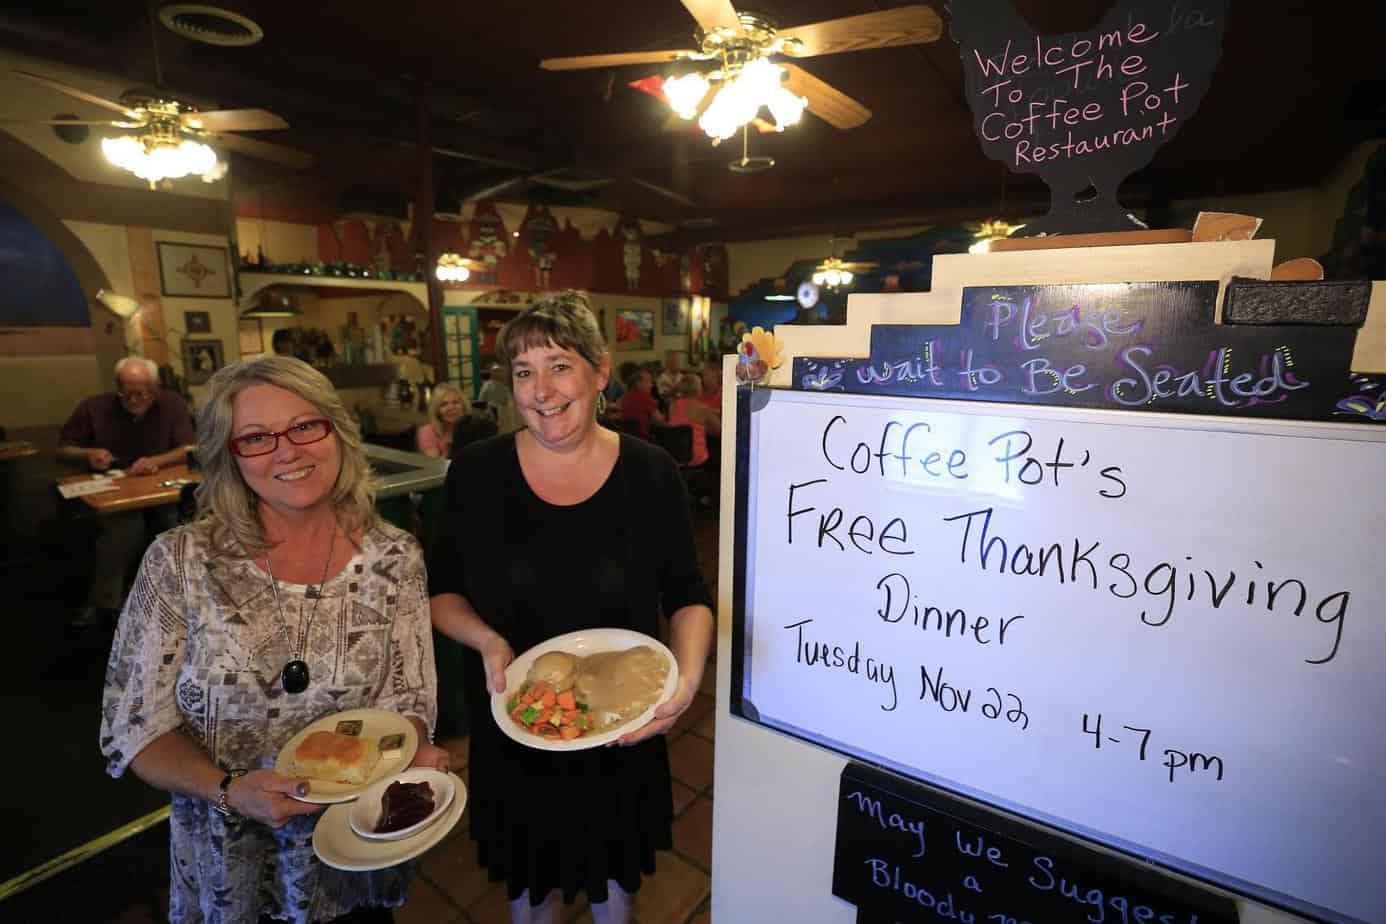 Welcome
To The
Coffee Pot
Restaurant
Please
wait to Be Seated
Coffee Pot's
FRee Thanksgiving
Dinner
Tuesday Nov 22, 4-7pm
May We Suggest
a
Bloody